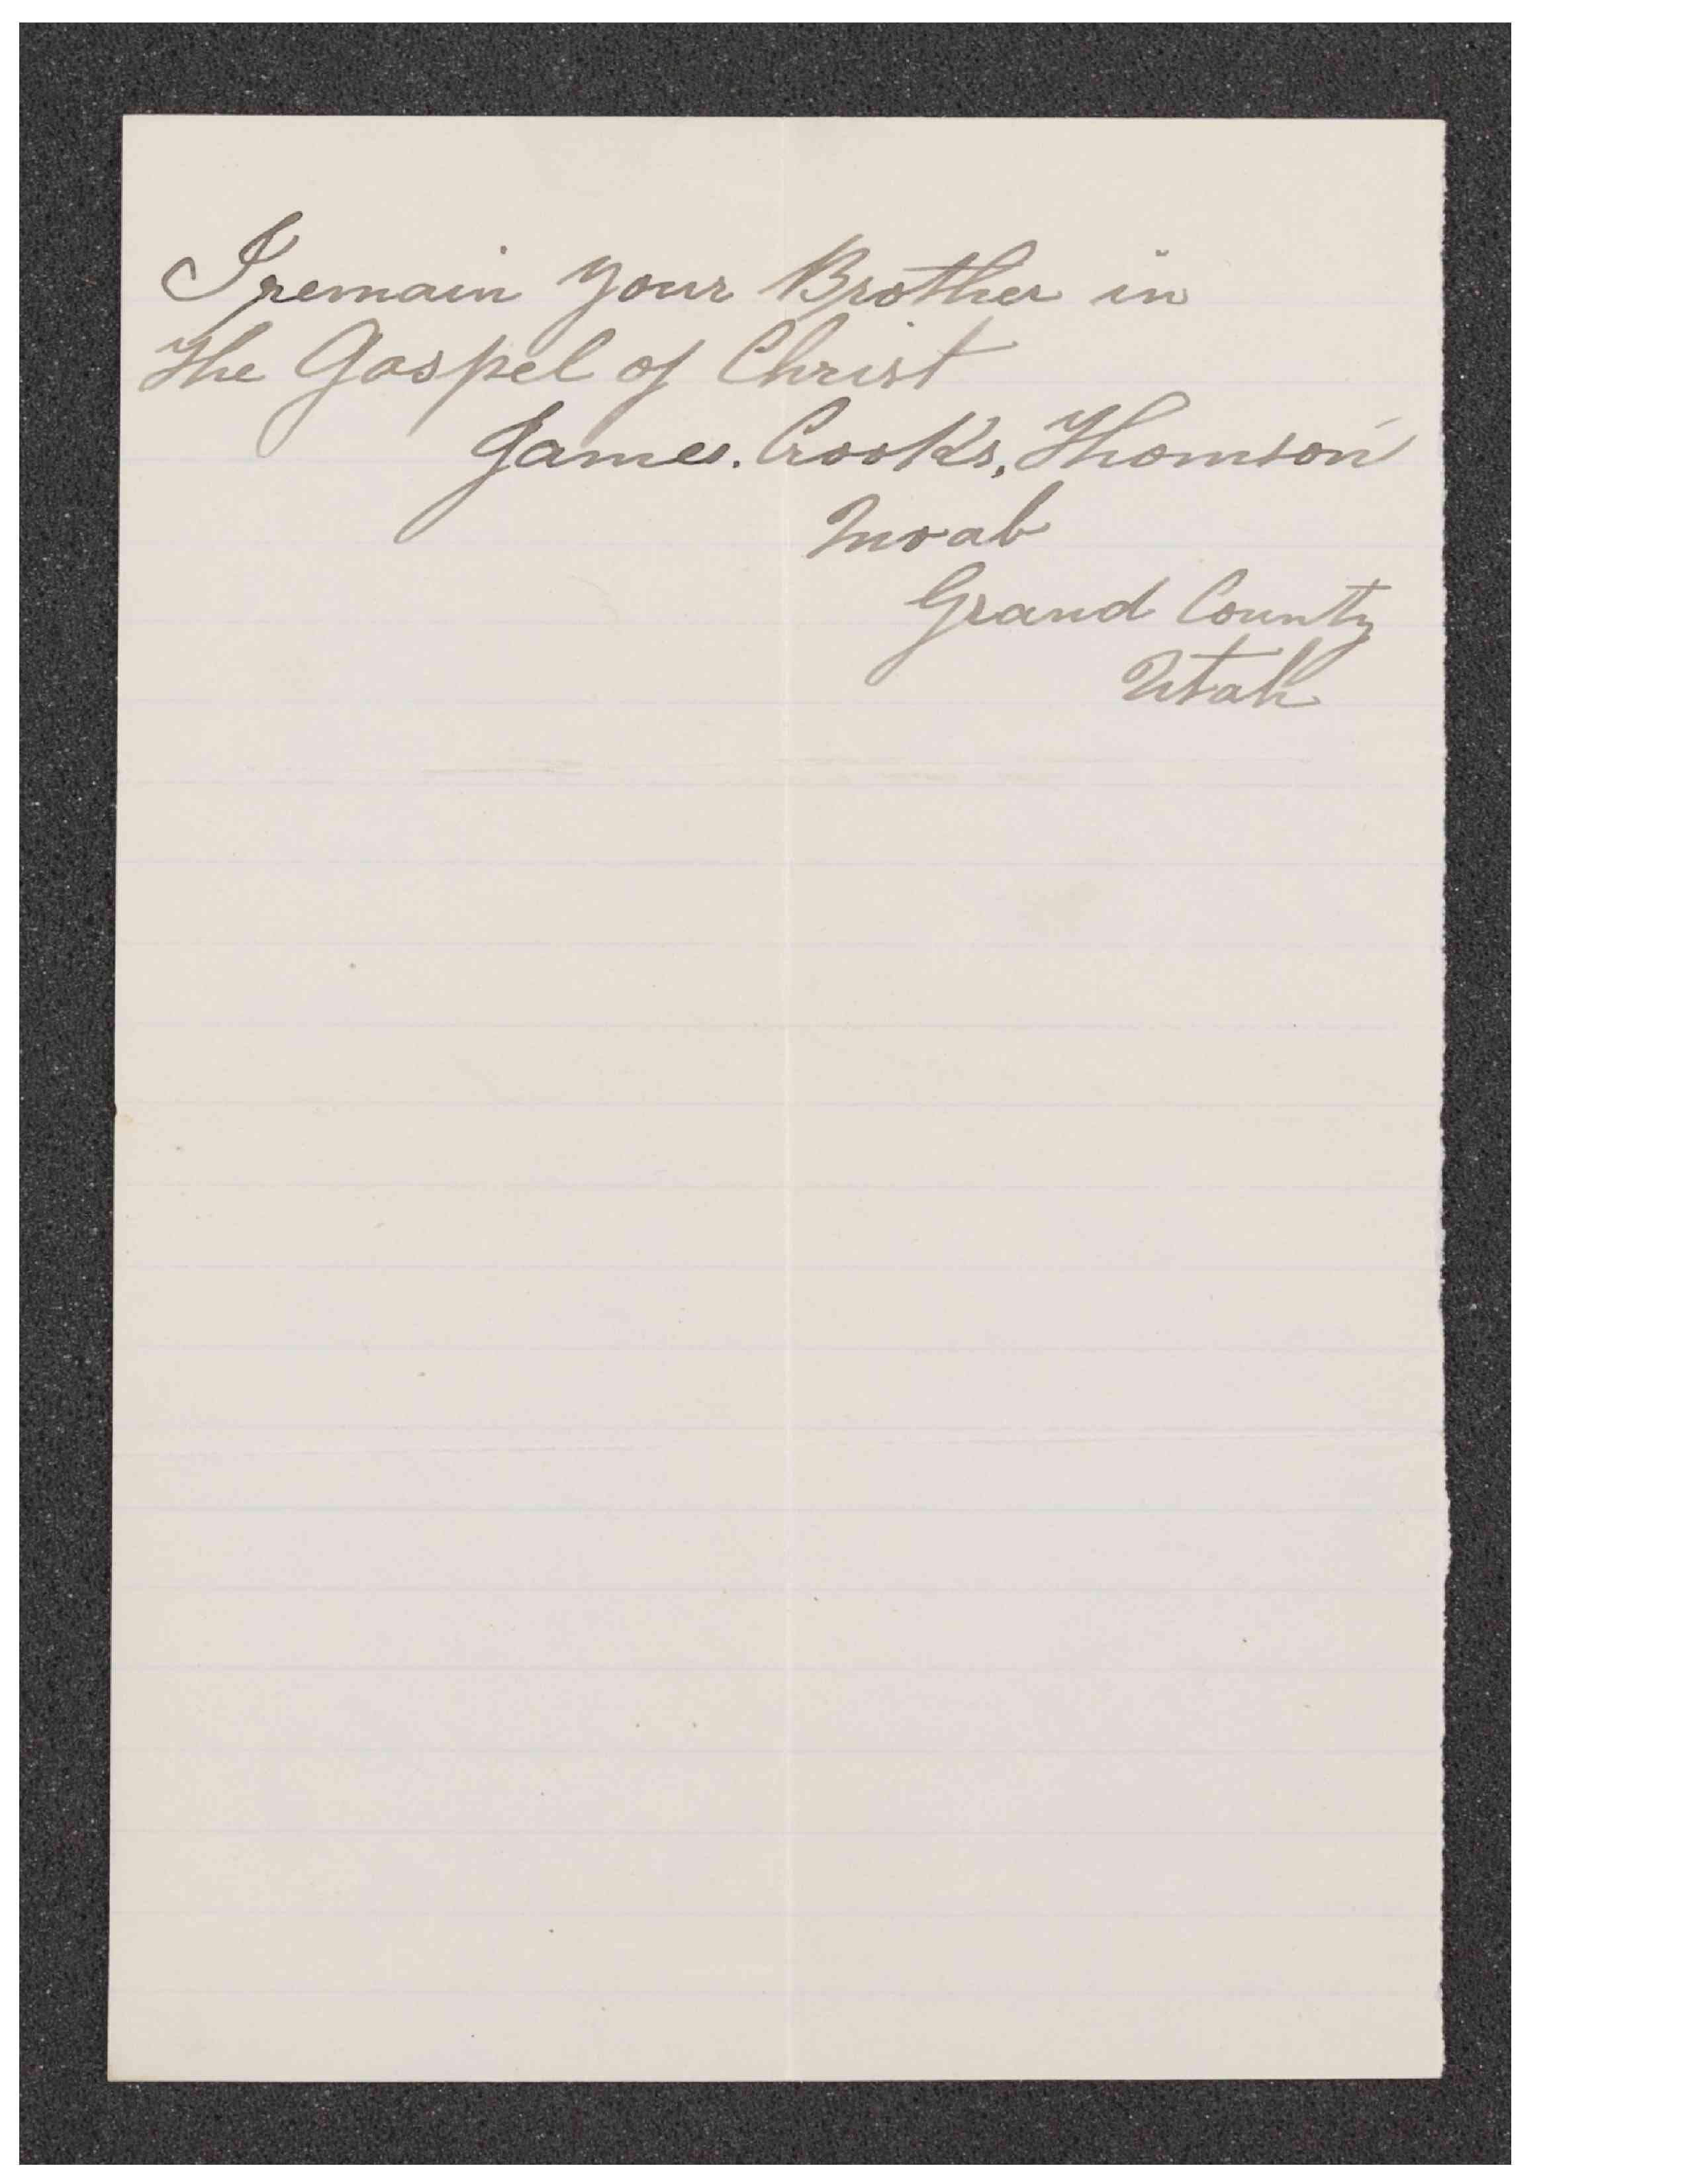 I remain your Brother in
the Gospel of Christ
James. Crooks, Thomson
Moab
Grand County
Utah